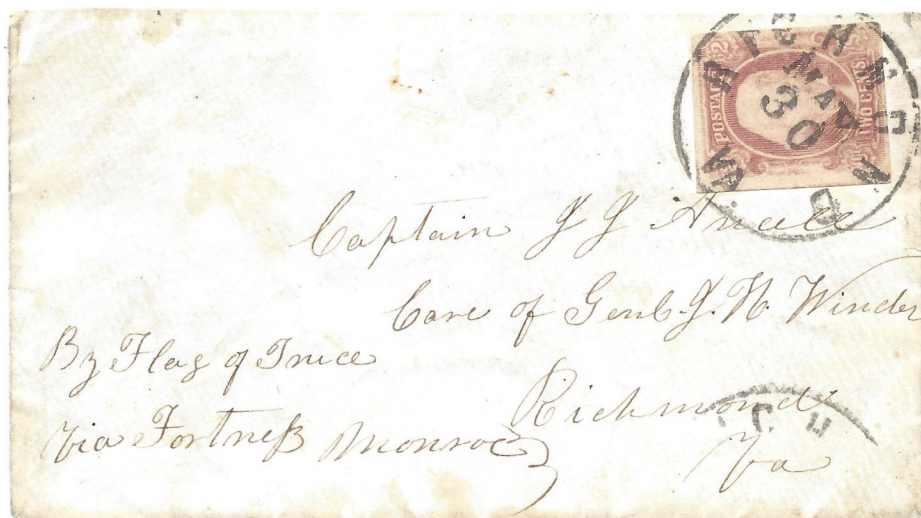 POSTAGE
TWO CENTS
RICHMOND VA.
MAR
30
Captain J J
Care of Genl. J. H. Winder
By Flag of Truce
Via Fortress Monroe
Richmond
Va